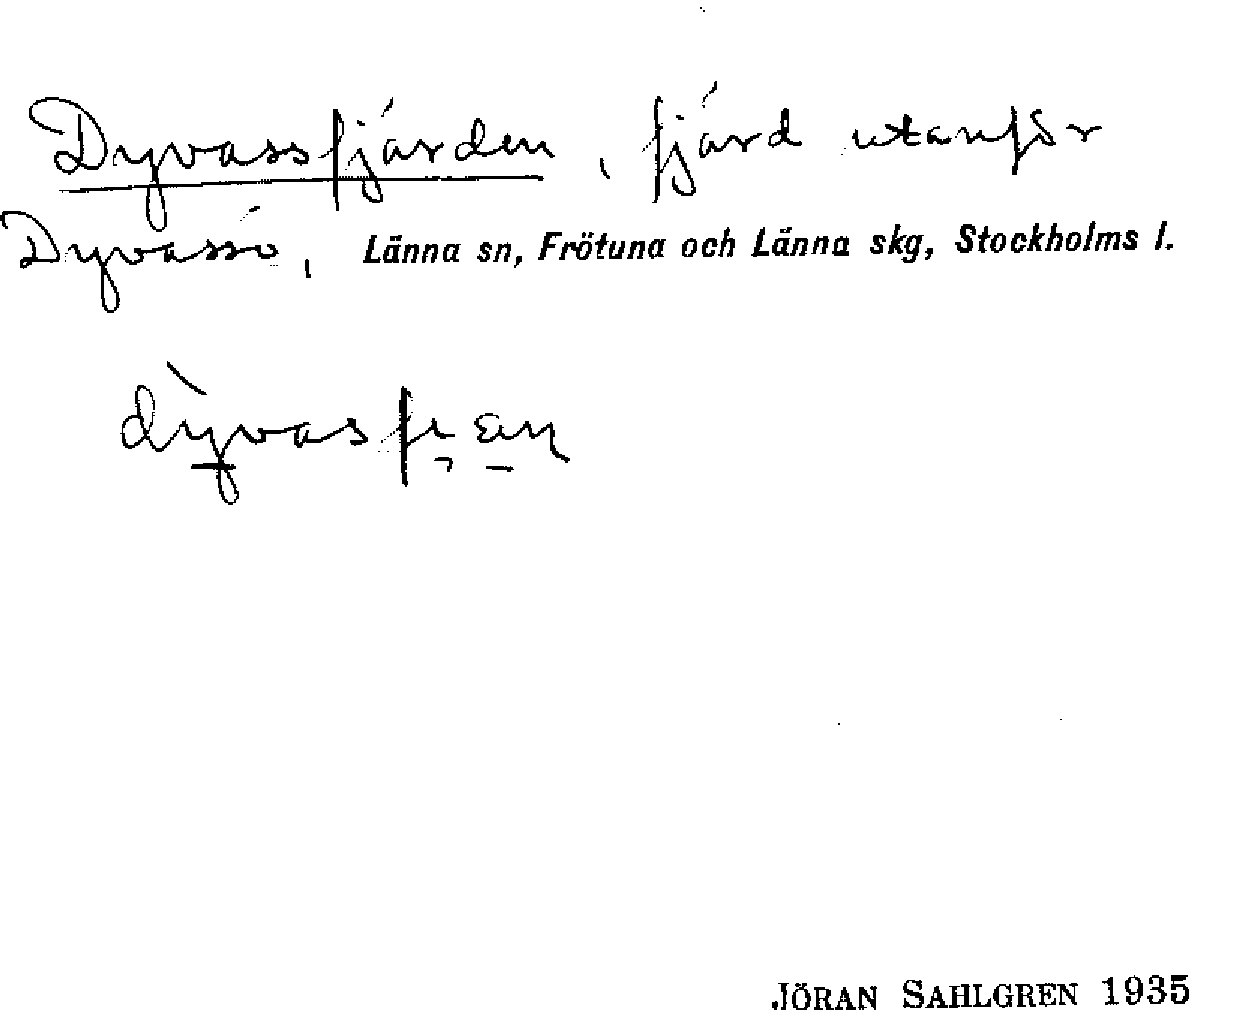 Dyvassfjärden, fjärd utanför
Dyvassö, Länna sn, Frötuna och Länna skg, Stockholms l.
JÖRAN SAHLGREN 1935